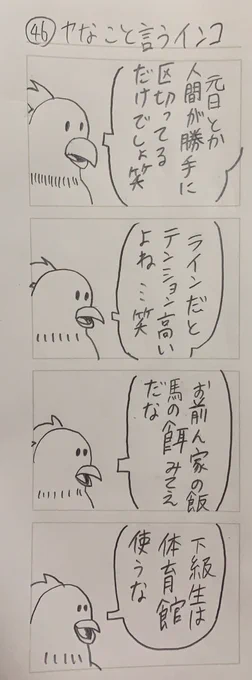 ㊻ ヤなこと言うインコ
元日とか
人間が勝手に
区切ってる
だけでしょ笑
ラインだと
テンション高い
よね…笑
お前ん家の飯
馬の餌みてえ
だな
下級生は
体育館
使うな